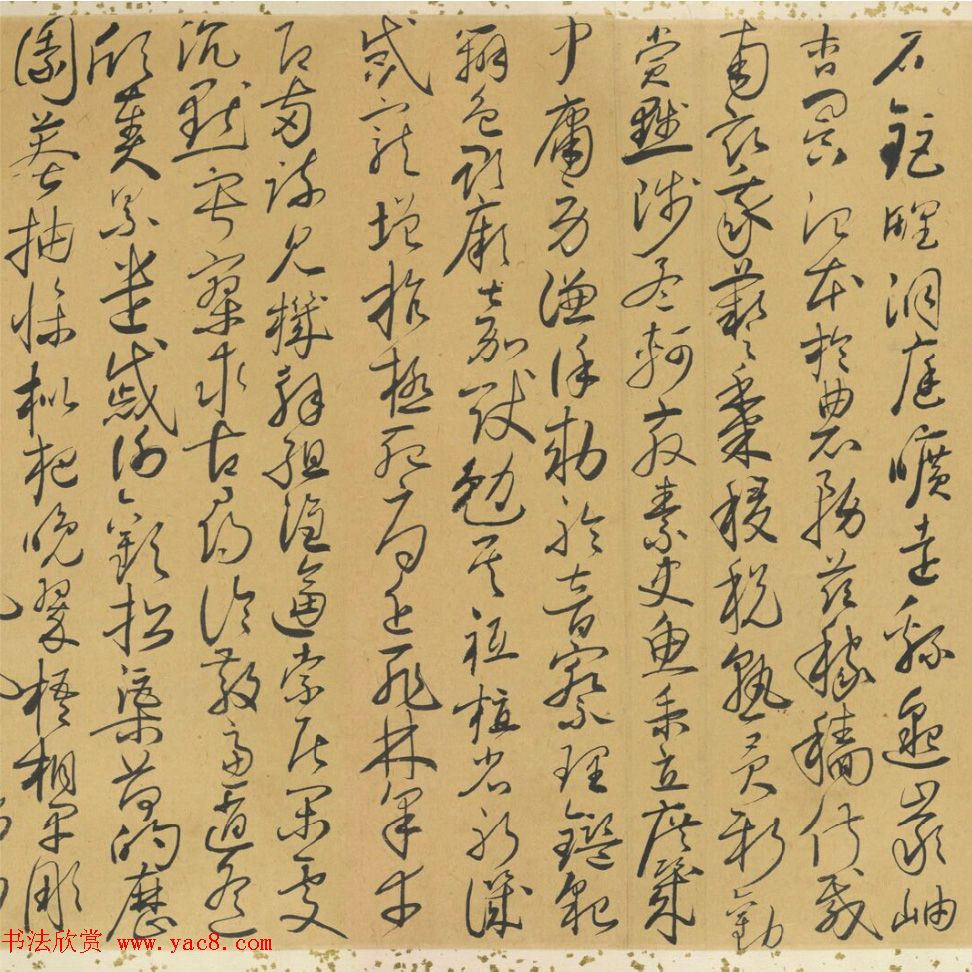 石鉅野洞庭曠遠緜邈巖岫
杳冥治本於農務茲稼穡俶載
南畝我藝黍稷稅熟貢新勸
賞黜陟孟軻敦素史魚秉直庶幾
中庸勞謙謹敕聆音察理鑑貌
辨色貽厥嘉猷勉其祗植省躬譏
誡寵增抗極殆辱近恥林皋幸
即兩疏見機解組誰逼索居閒處
沉默寂寥求古尋論散慮逍遙
欣奏累遣慼謝歡招渠荷的歷
園莽抽條枇杷晚翠梧桐早彫
书法欣赏 www.yac8.com